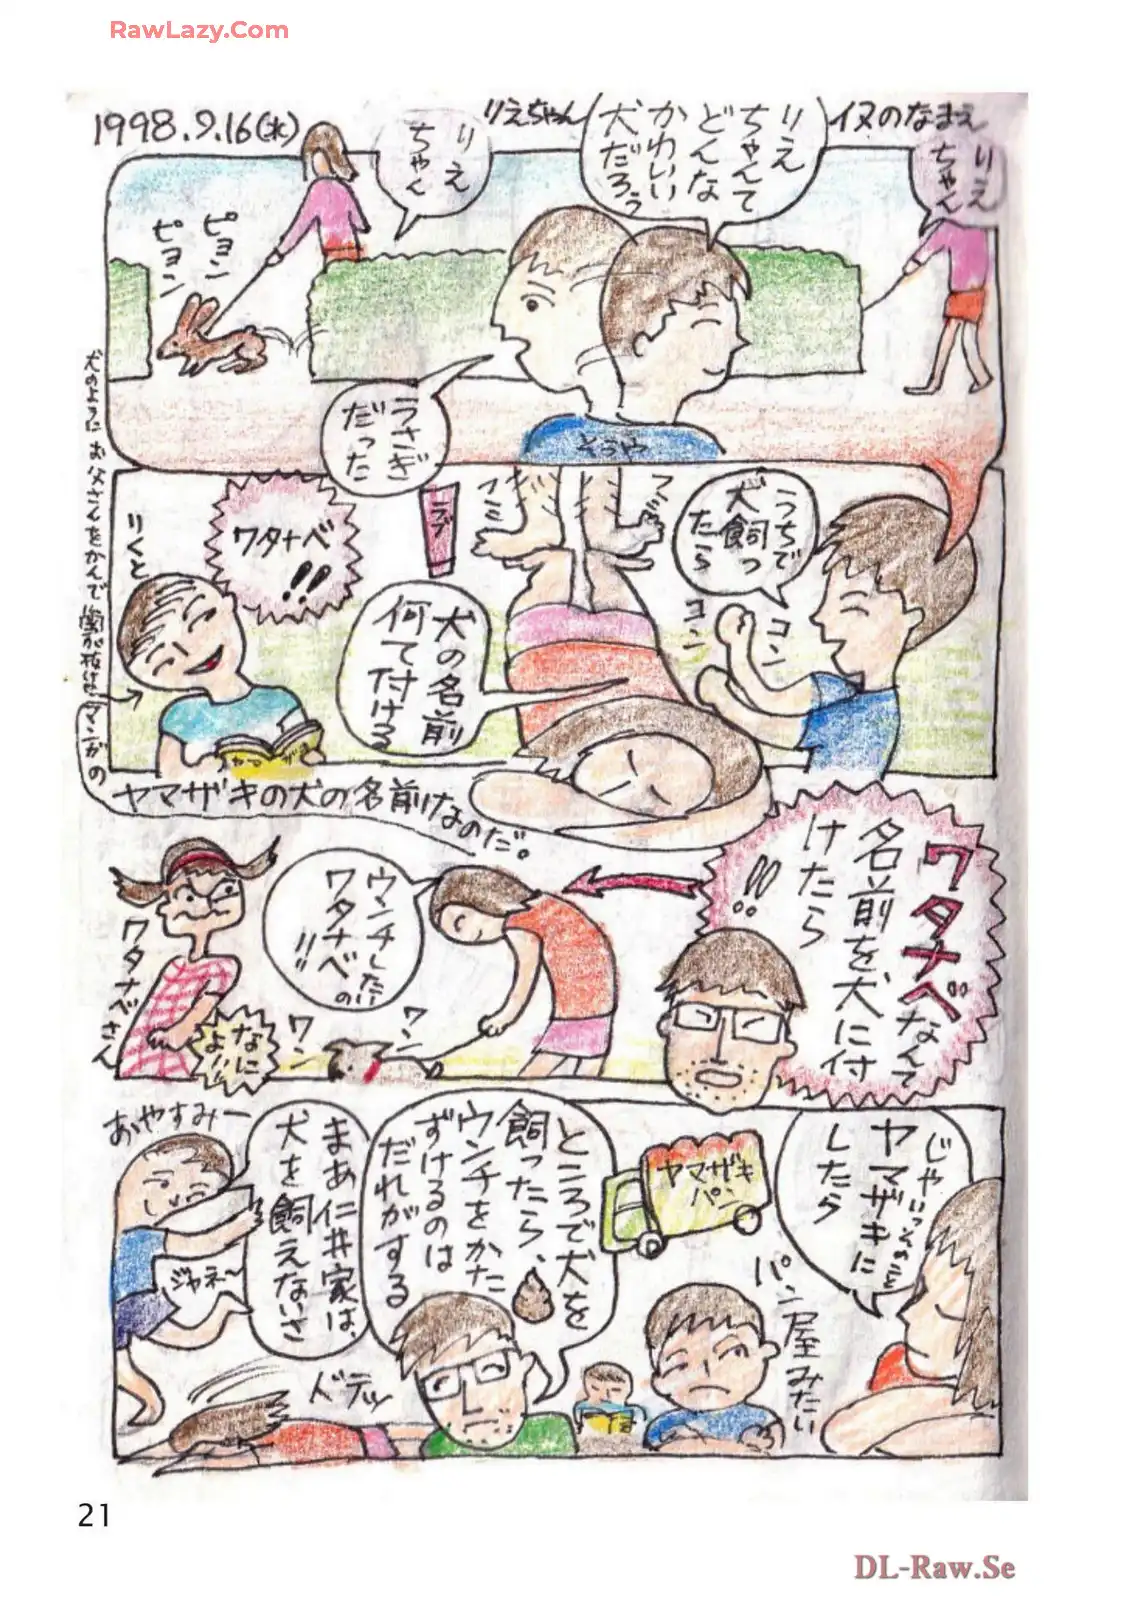 RawLazy.Com
イヌのなまえ
りえちゃん
1998.9.16(水)
りえ
ちゃん
りえ
ちゃんて
どんな
かわいい
犬だろう
りえ
ちゃん
ピョン
ピョン
うさぎ
だった
そうや
うちで
犬飼っ
たら
コン
コン
フミ
フミ
ラブ
犬の名前
何て付ける
ワタナベ
!!
りくと
犬のように お父さんをかんで
マンガの
ヤマザキの犬の名前なのだ。
ワタナベなんて
名前を、犬に付
けたら
!!
ウンチしたい
ワタナベの
!!
ワン
ワン
ワタナベさん
なに
よ!!
じゃいっそのこと
ヤマザキに
したら
ヤマザキ
パン
パン屋みたい
ところで犬を
飼ったら、
ウンチをかた
ずけるのは
だれがする
ドテッ
まあ仁井家は、
犬を飼えないさ
おやすみー
ジャネ〜
21
DL-Raw.Se